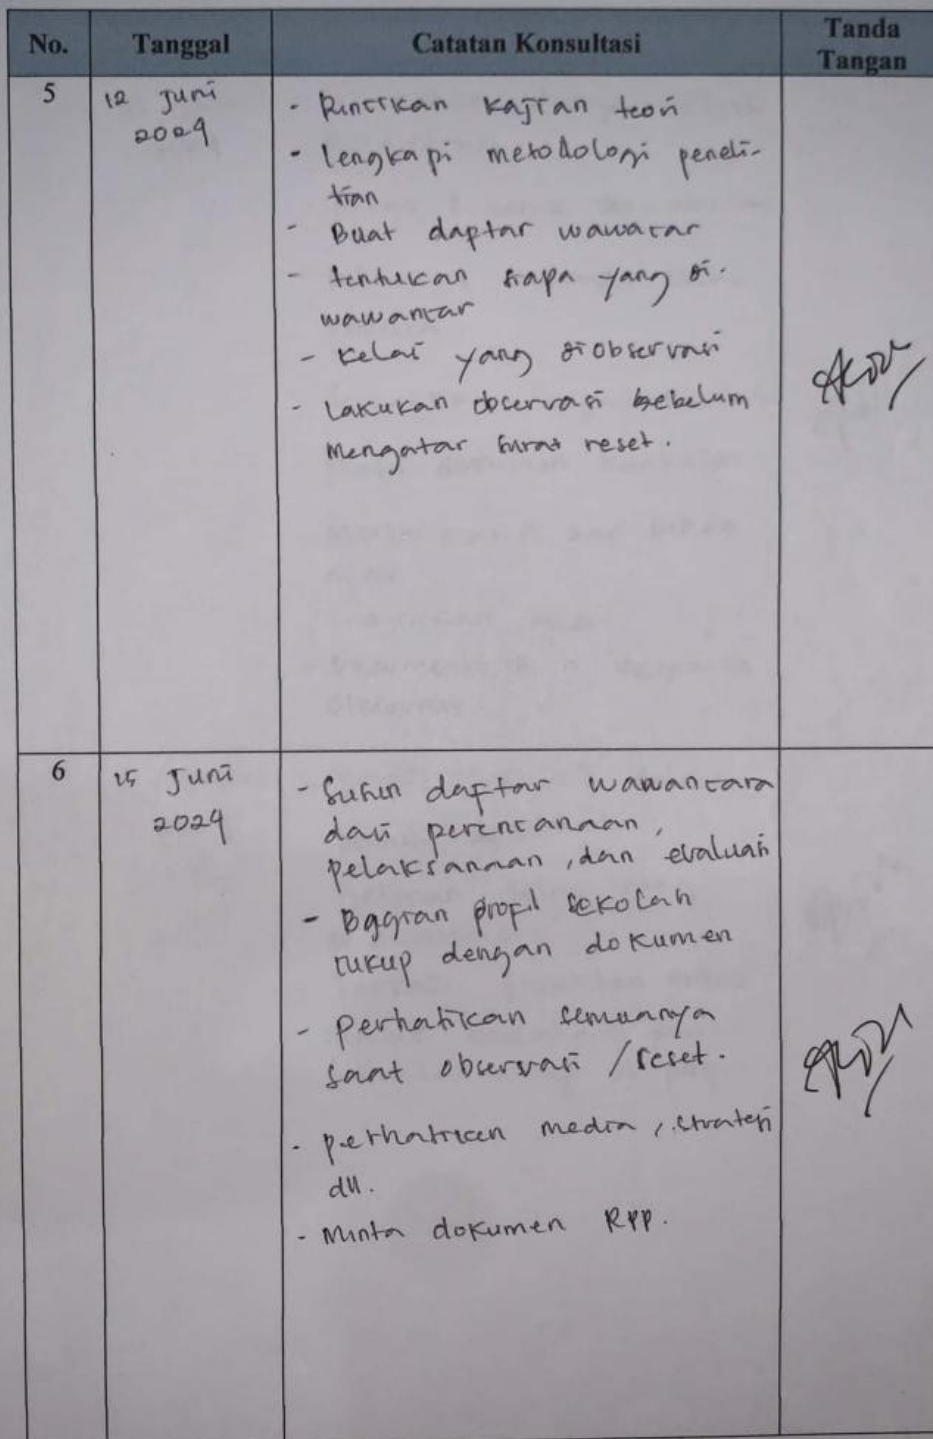 No. Tanggal Catatan Konsultasi Tanda Tangan
5 12 Juni 2024
- Rincikan kajian teori
- lengkapi metodologi peneli-
tian
- Buat daptar wawacar
- tentukan siapa yang di.
wawancar
- Kelas yang diobservasi
- Lakukan observasi sebelum
mengatar surat reset.
6 15 Juni 2024
- Susun daftar wawancara
dari perencanaan,
pelaksanaan, dan evaluasi
- Bagian profil sekolah
cukup dengan dokumen
- perhatikan semuanya
saat observasi / reset.
- perhatikan media, strategi
dll.
- Minta dokumen RPP.